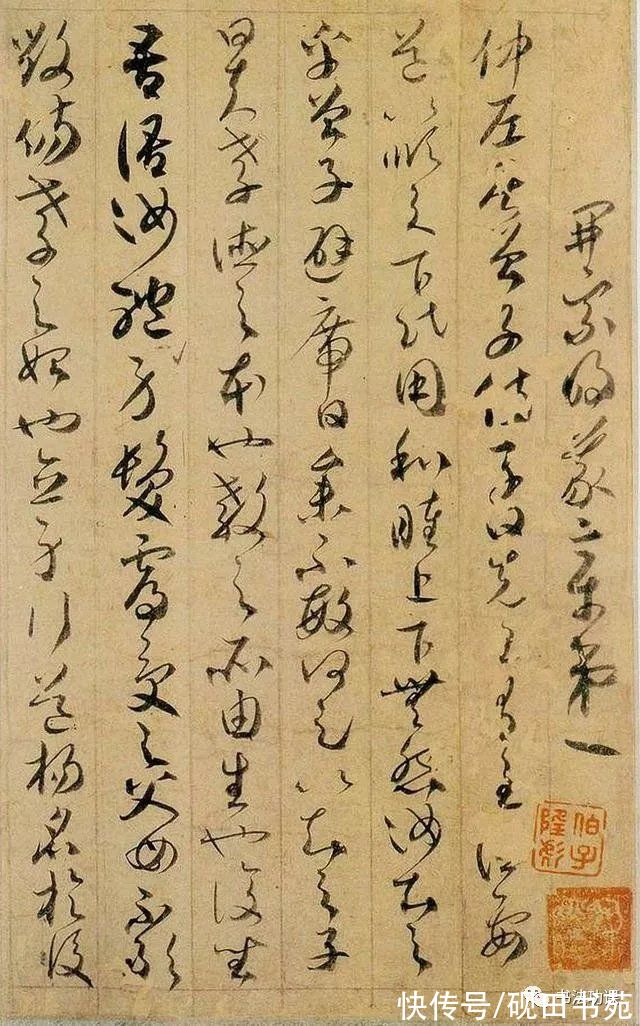 開宗明義章第一
仲尼居曾子侍子曰先王有至德要
道以順天下民用和睦上下無怨汝知之
乎曾子避席曰參不敏何足以知之子
曰夫孝德之本也教之所由生也復坐
吾語汝體身髮膚受之父母不敢
毀傷孝之始也立身行道揚名於後
书法功课
快传号/砚田书苑